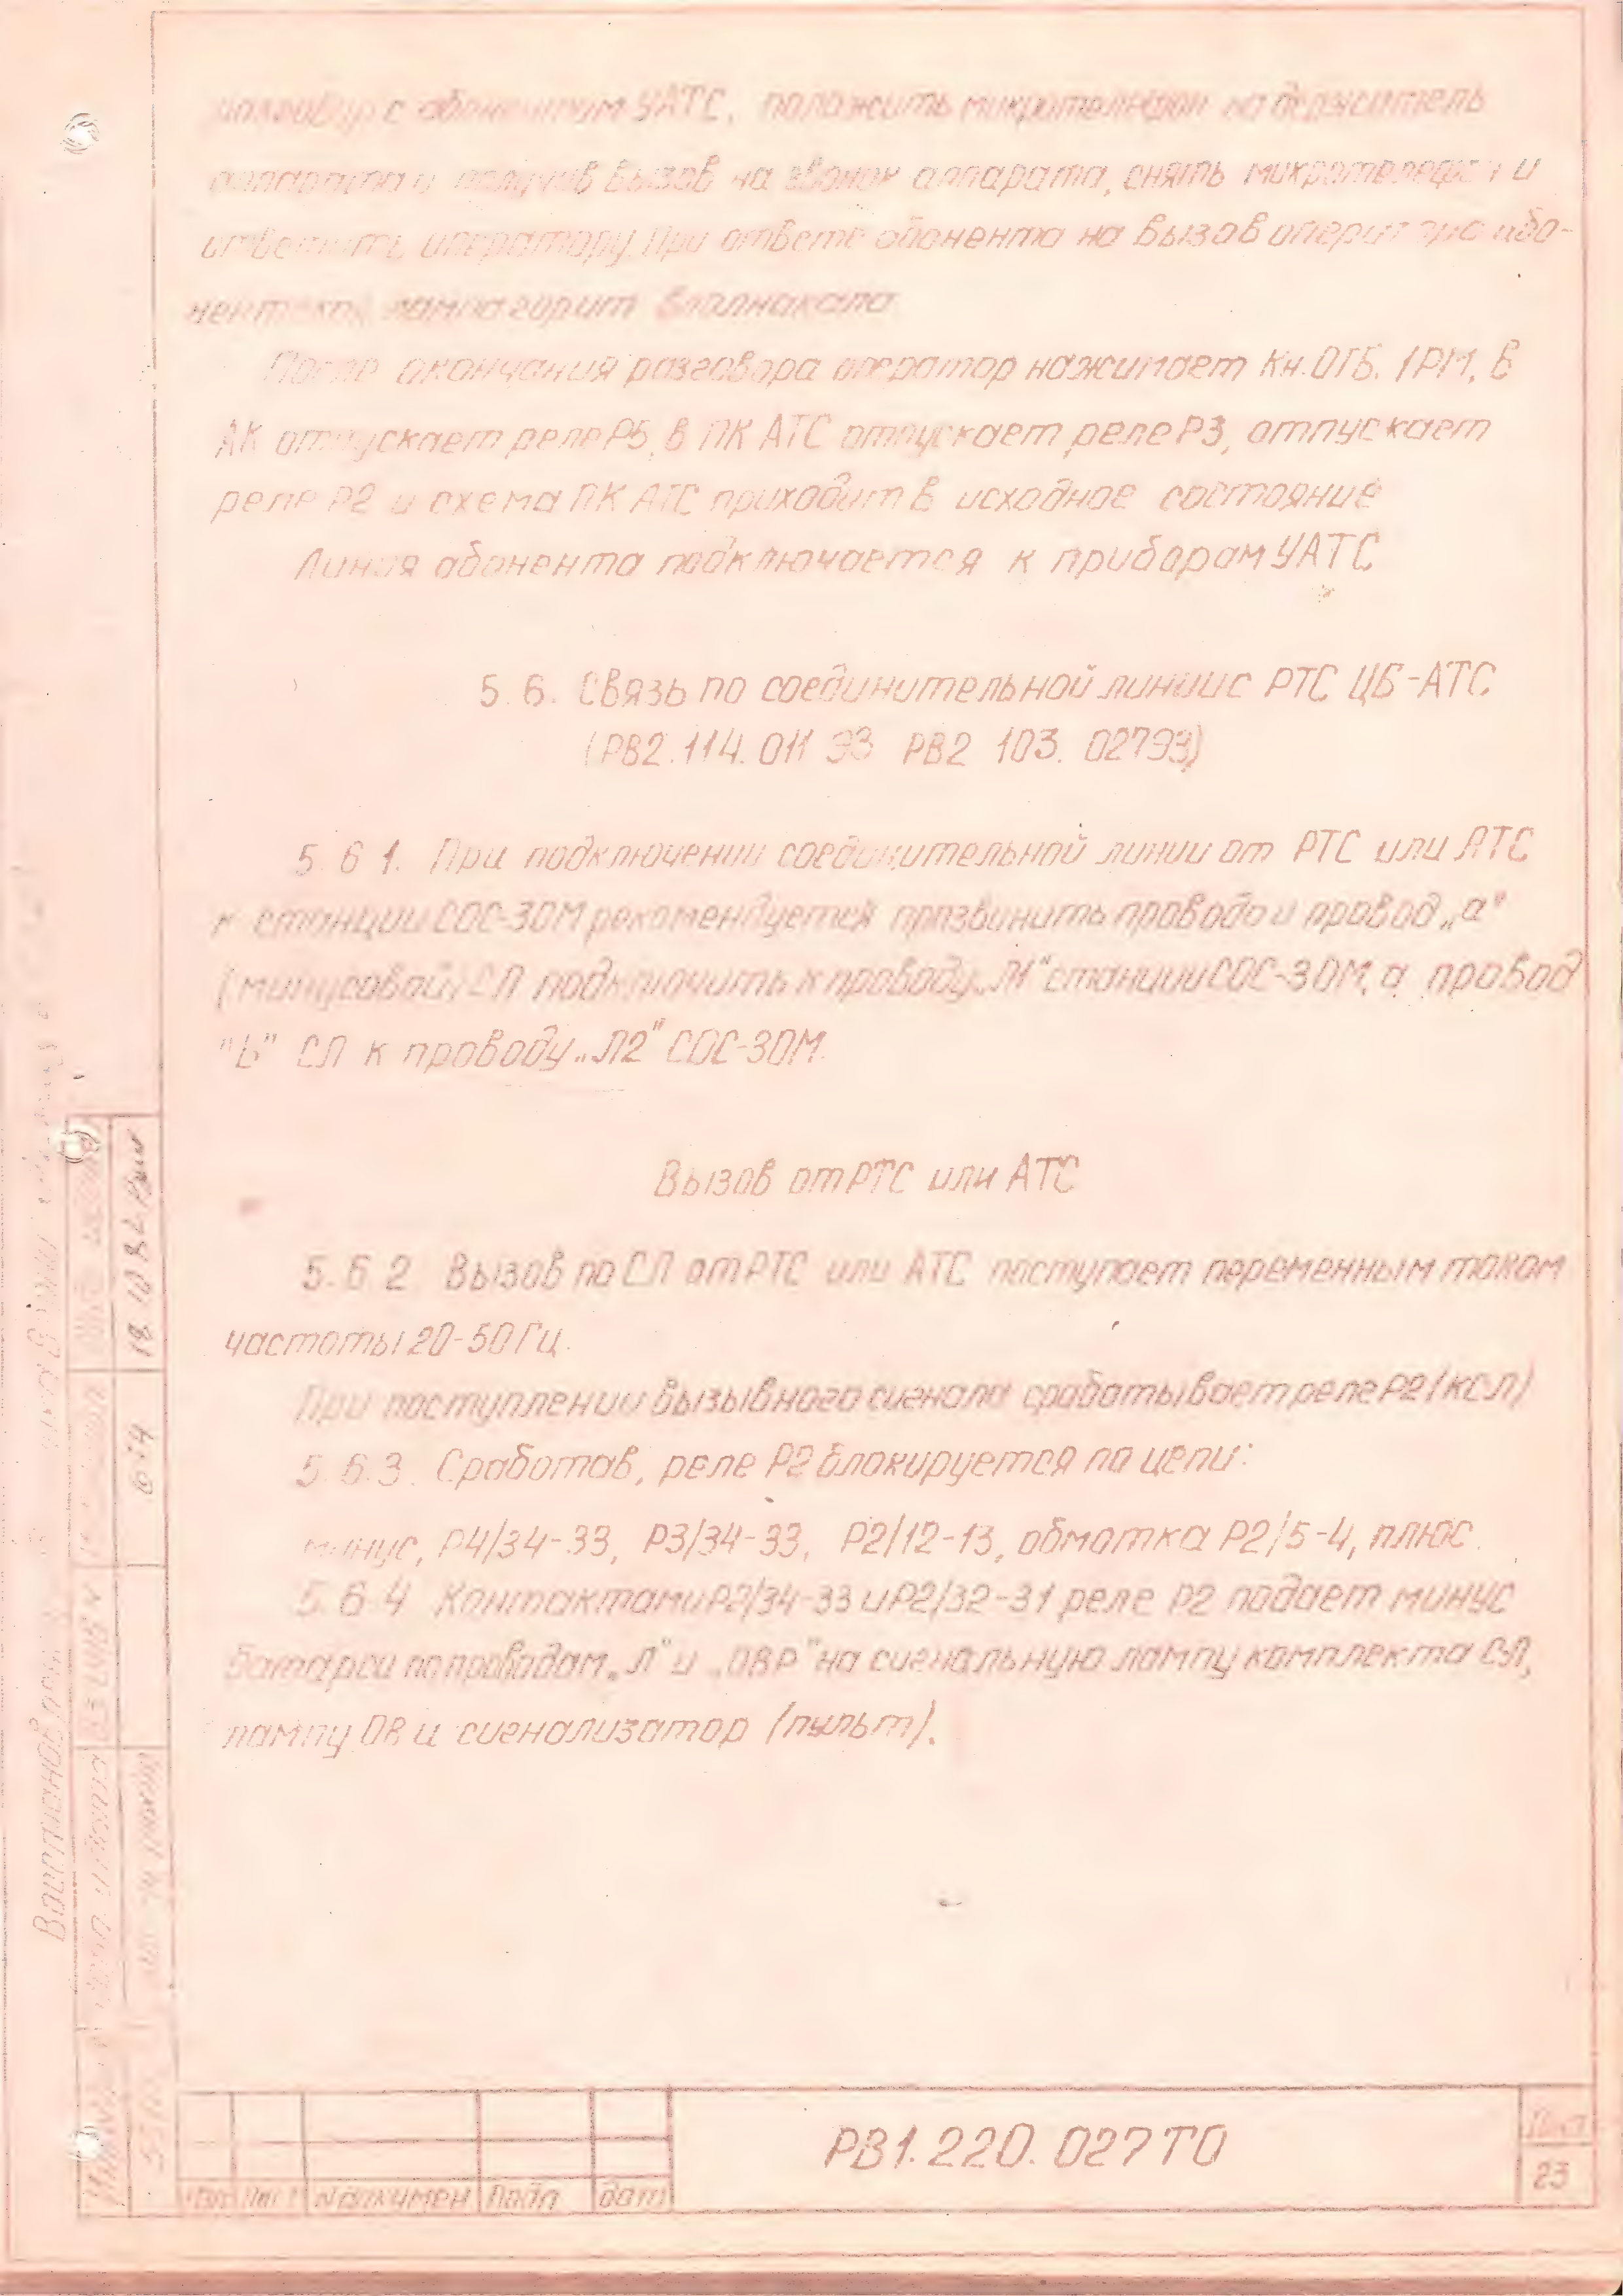 разговор с абонентом УАТС, положить микротелефон на держатель
аппарата и получив вызов на звонок аппарата, снять микротелефон и
ответить оператору. При ответе абонента на вызов оператора або-
нентская лампа горит вполнакала.
После окончания разговора оператор нажимает Кн.ОТБ. 1РМ, в
АК отпускает реле Р5, в ПК АТС отпускает реле Р3, отпускает
реле Р2 и схема ПК АТС приходит в исходное состояние
Линия абонента подключается к приборам УАТС
5.6. Связь по соединительной линии с РТС ЦБ-АТС
(РВ2.114.011 Э3 РВ2 103.027Э3)
5.6 1. При подключении соединительной линии от РТС или АТС
к станции СОС-30М рекомендуется прозвонить провода и провод „а"
(минусовой) СЛ подключить к проводу „Л1" станции СОС-30М, а провод
"Ь" СЛ к проводу „Л2" СОС-30М.
Вызов от РТС или АТС
5.6 2 Вызов по СЛ от РТС или АТС поступает переменным током
частоты 20-50Гц.
При поступлении вызывного сигнала срабатывает реле Р2 (КСЛ)
5.6.3. Сработав, реле Р2 блокируется по цепи:
минус, Р4/34-33, Р3/34-33, Р2/12-13, обмотка Р2/5-4, плюс.
5.6 4 Контактами Р2/34-33 и Р2/32-31 реле Р2 подает минус
батареи по проводам „Л" и „ОВР" на сигнальную лампу комплекта СЛ,
лампу ОВ и сигнализатор (пульт).
РВ1.220.027ТО
Лист
23
Лист
№ докумен
Подп
дат
18 10 82